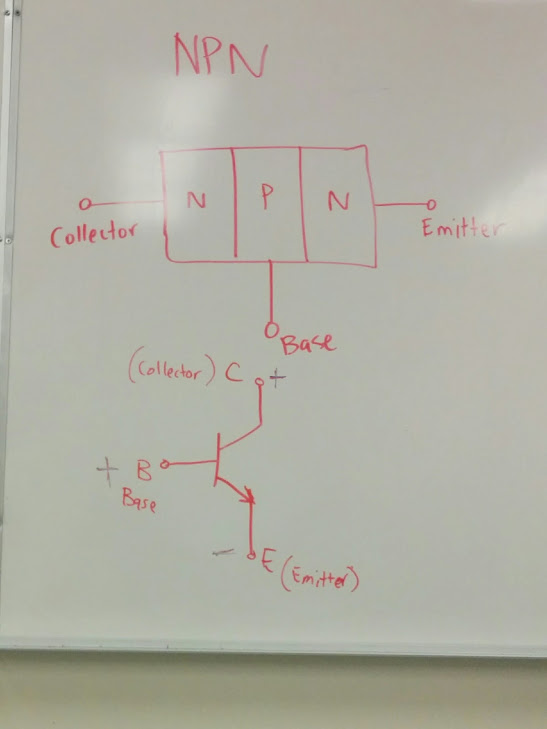 NPN
N P N
Collector
Emitter
Base
(Collector) C +
+ B
Base
- E (Emitter)